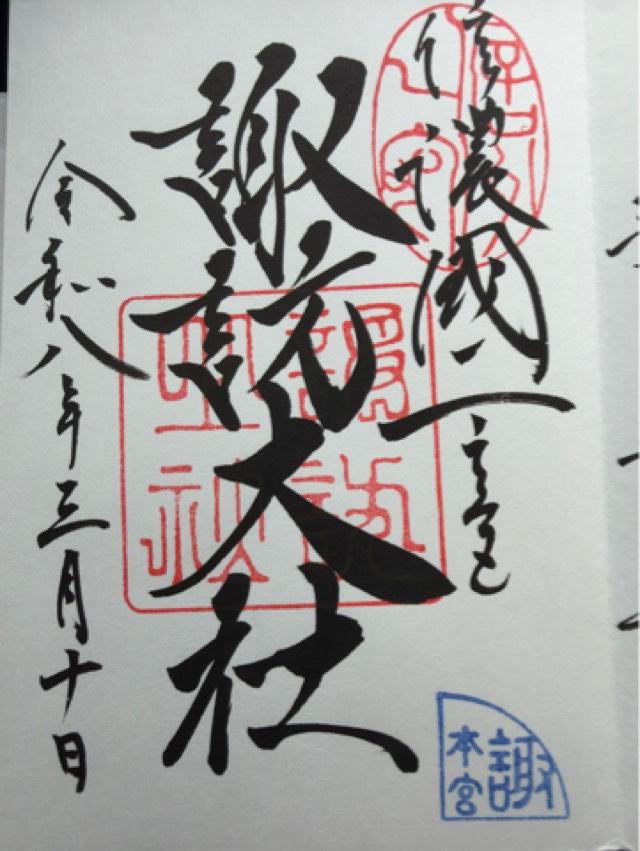 信濃國一之宮
諏訪大社
令和八年三月十日
諏訪
大社
本宮
諏